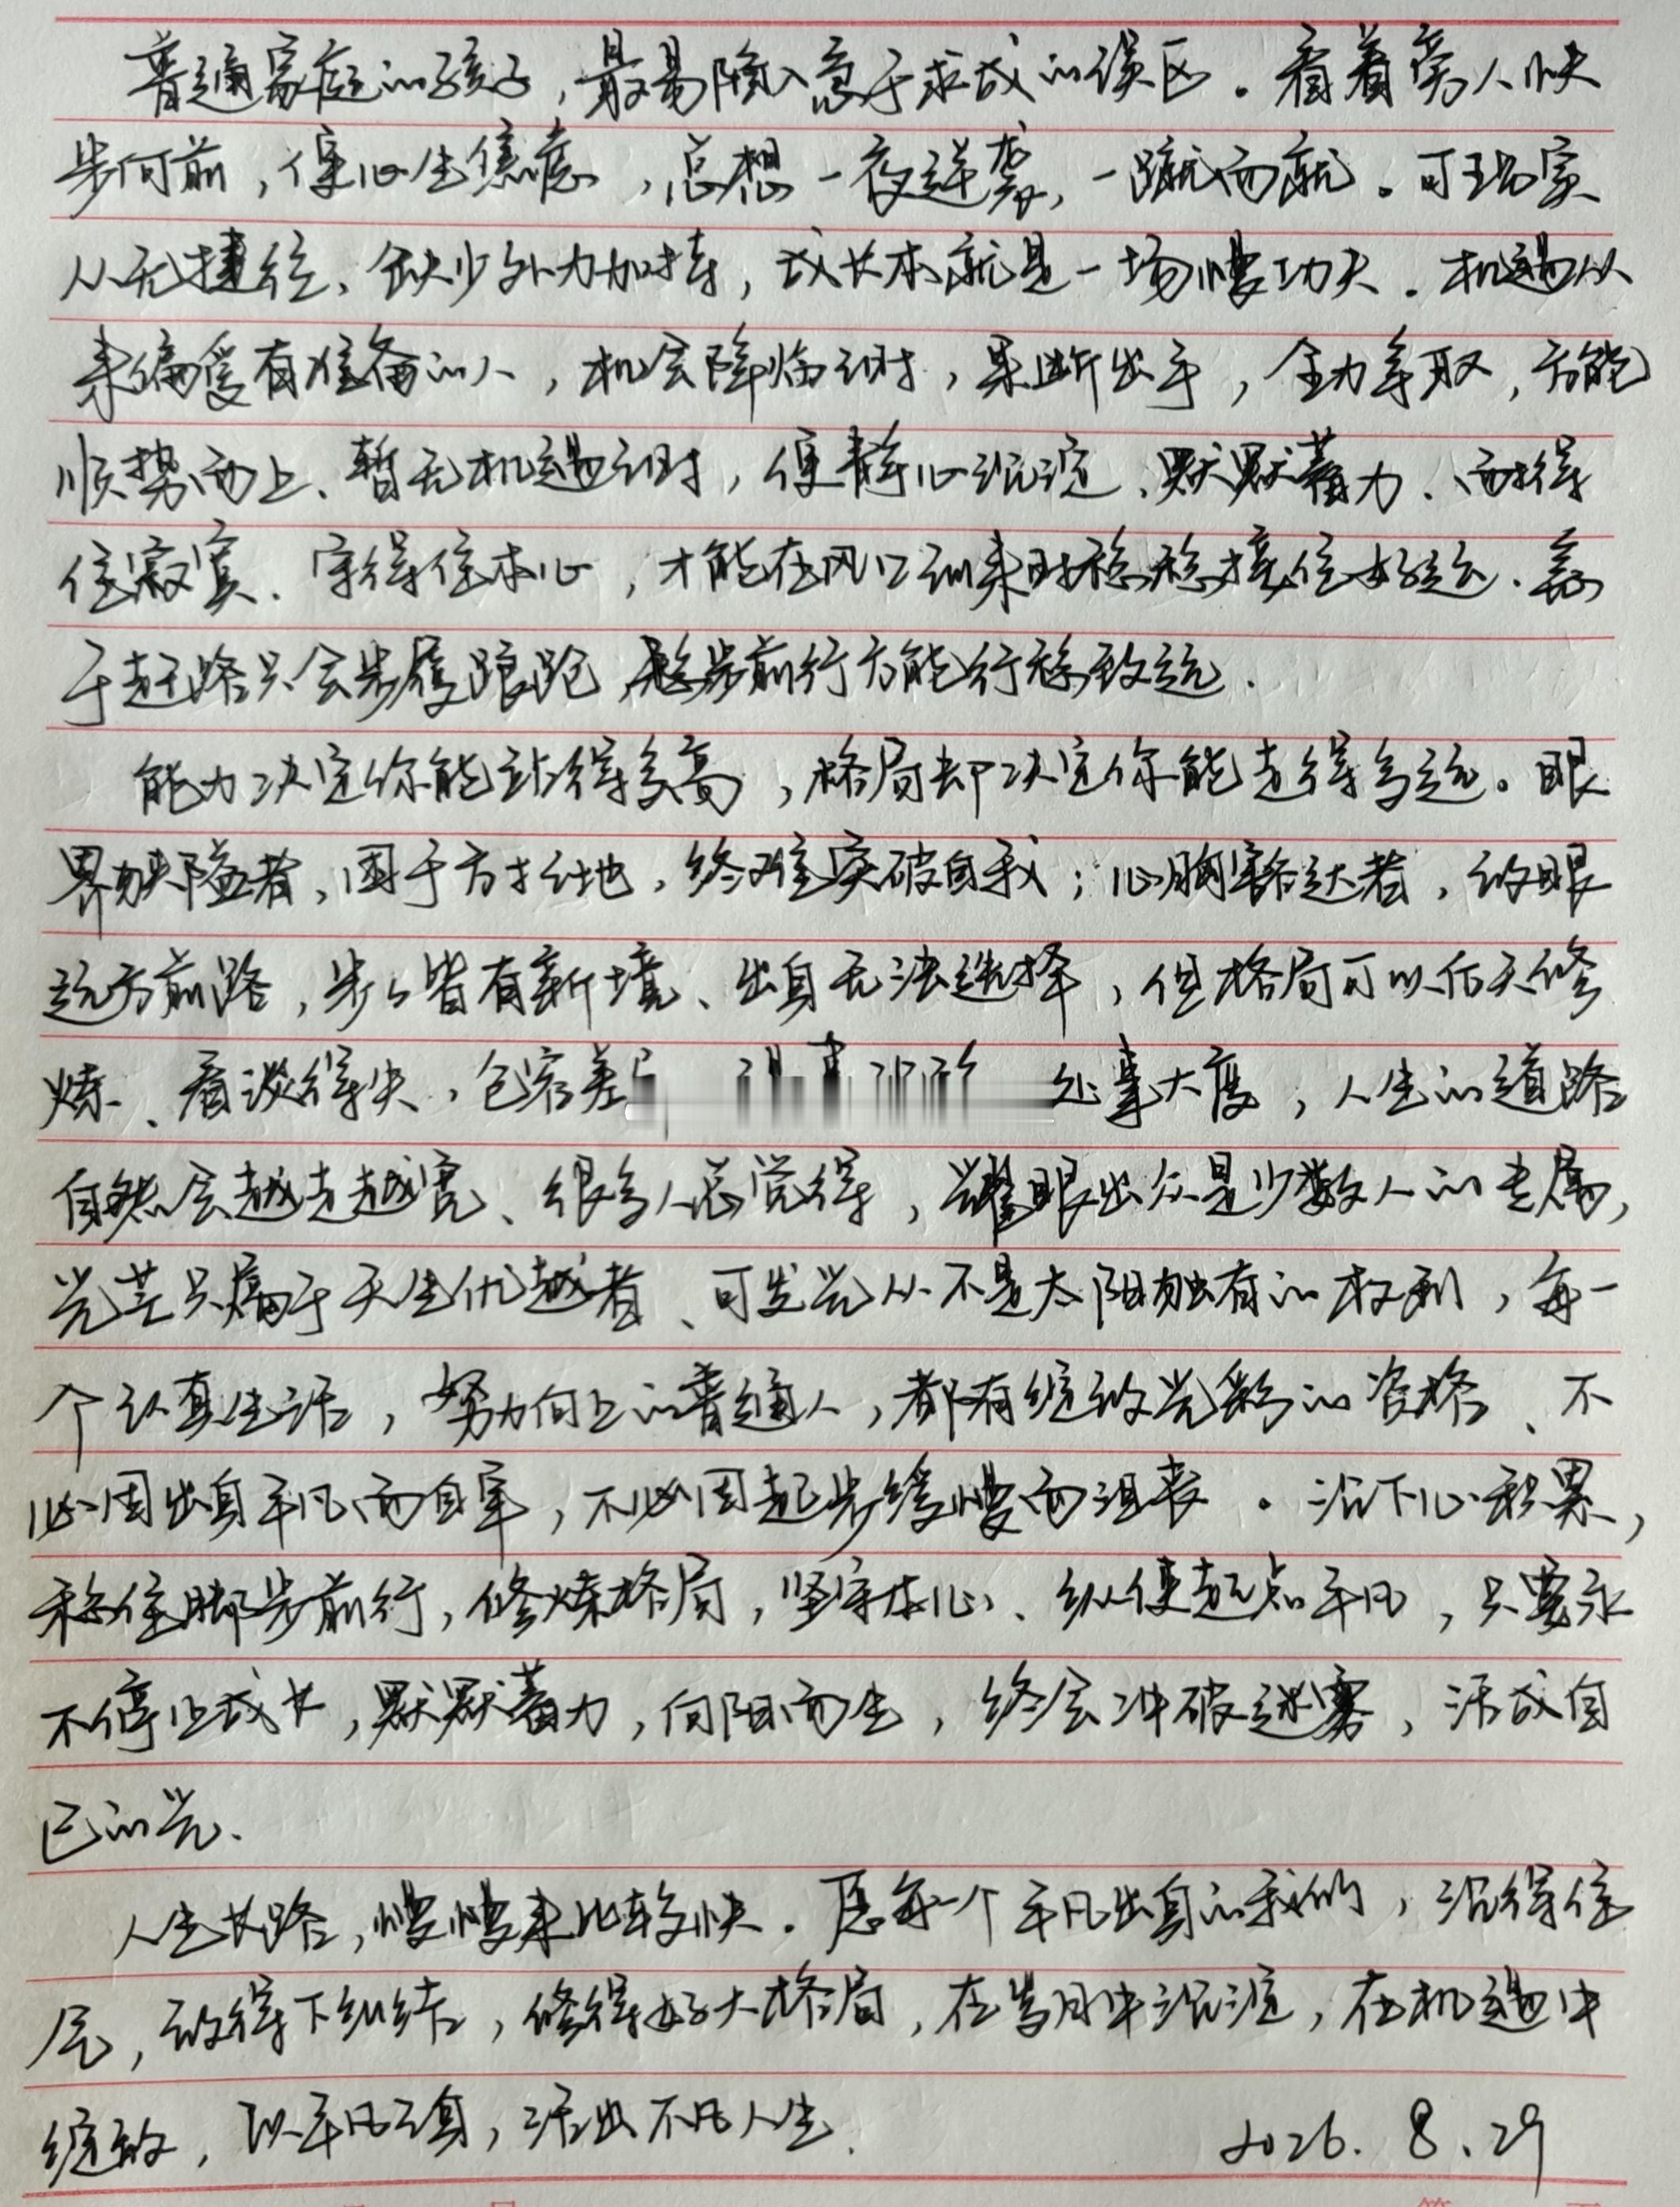 普通家庭的孩子，最易陷入急于求成的误区。看着旁人快
步向前，便心生焦虑，总想一夜逆袭，一蹴而就。可现实
从无捷径、缺少外力加持，成长本就是一场慢功夫．机遇从
来偏爱有准备的人，机会降临之时，果断出手，全力争取，方能
顺势而上、暂无机遇之时，便静心沉淀、默默蓄力、耐得
住寂寞、守得住本心，才能在风口到来时稳稳接住好运．急
于赶路只会步履踉跄，稳步前行方能行稳致远．
能力决定你能站得多高，格局却决定你能走得多远。眼
界狭隘者、困于方寸之地，终难突破自我；心胸豁达者，放眼
远方前路，步步皆有新境、出身无法选择，但格局可以后天修
炼、看淡得失，包容差 处事大度，人生的道路
自然会越走越宽、很多人总觉得，耀眼出众是少数人的专属，
光芒只属于天生优越者、可发光从不是太阳独有的权利，每一
个认真生活，努力向上的普通人，都有绽放光彩的资格、不
必因出身平凡而自卑，不必因起步缓慢而沮丧。沉下心积累，
稳住脚步前行，修炼格局，坚守本心、纵使起点平凡，只要永
不停止成长，默默蓄力，向阳而生，终会冲破迷雾，活成自
己的光．
人生长路，慢慢来比较快．愿每一个平凡出身的我们，沉得住
气，放得下纠结，修得好大格局，在岁月中沉淀，在机遇中
绽放，以平凡之身，活出不凡人生．
2026．8．29